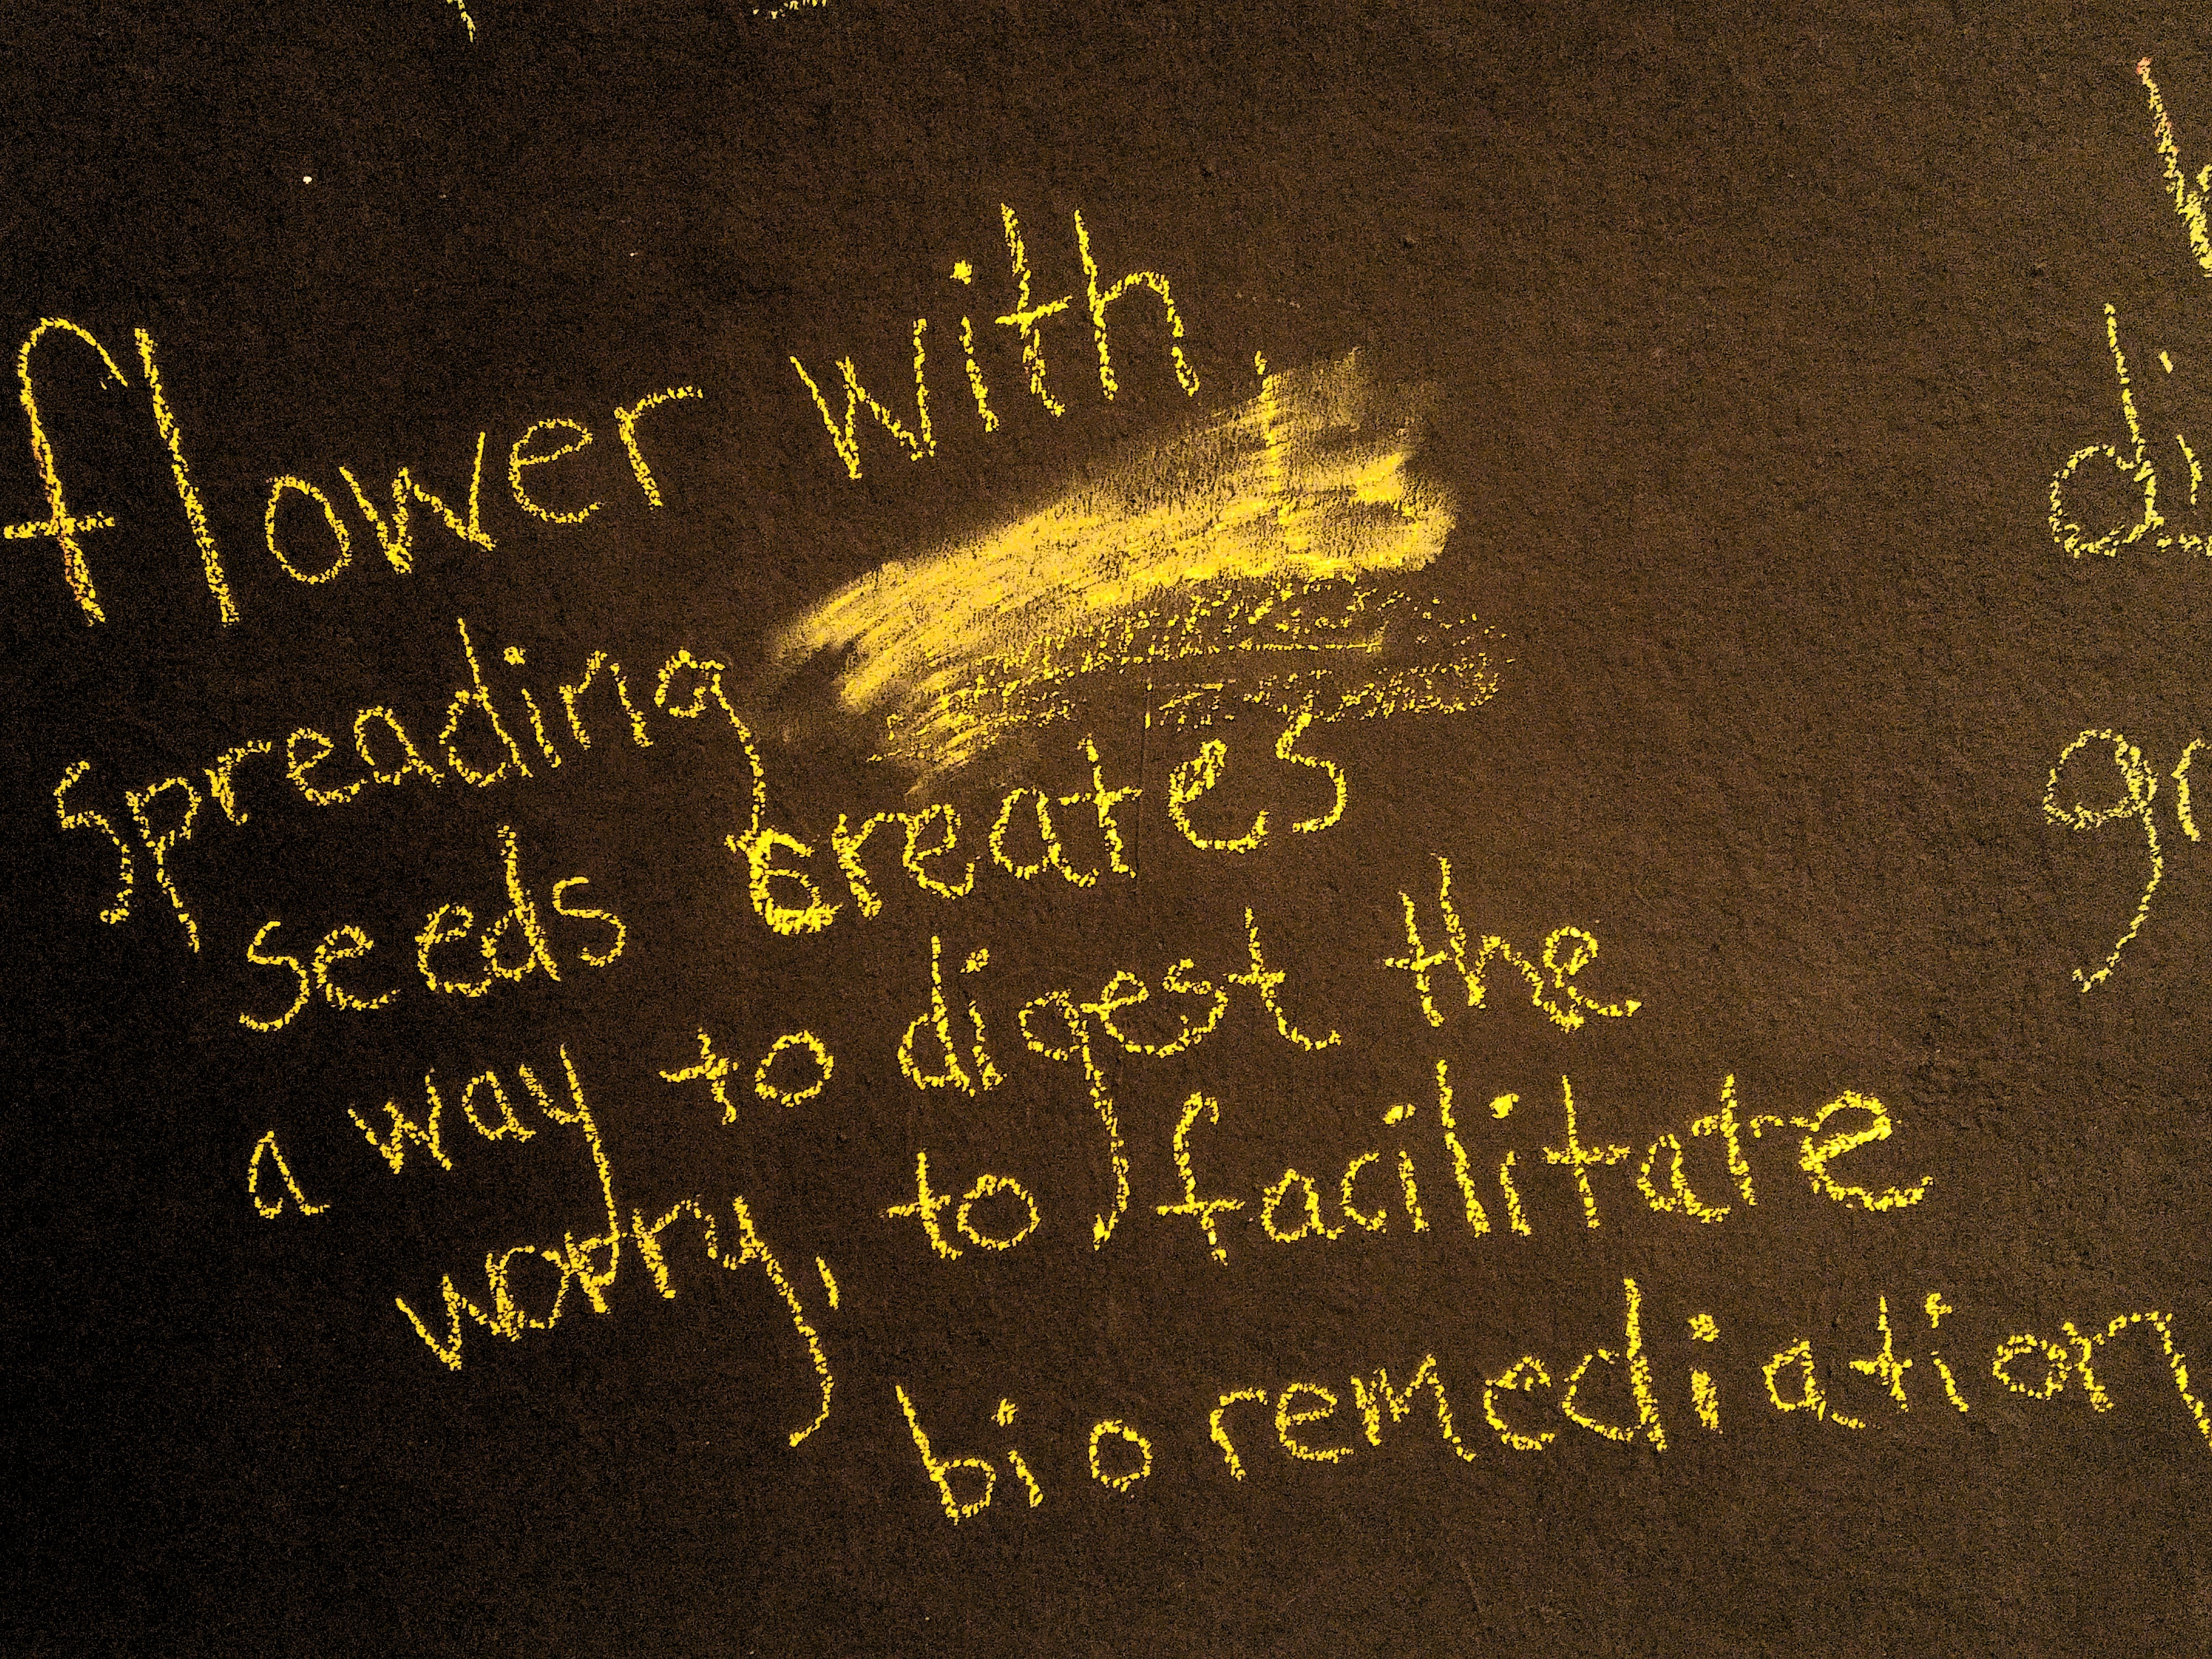 flower with
spreading
seeds creates
a way to digest the
worry, to facilitate
bioremediation